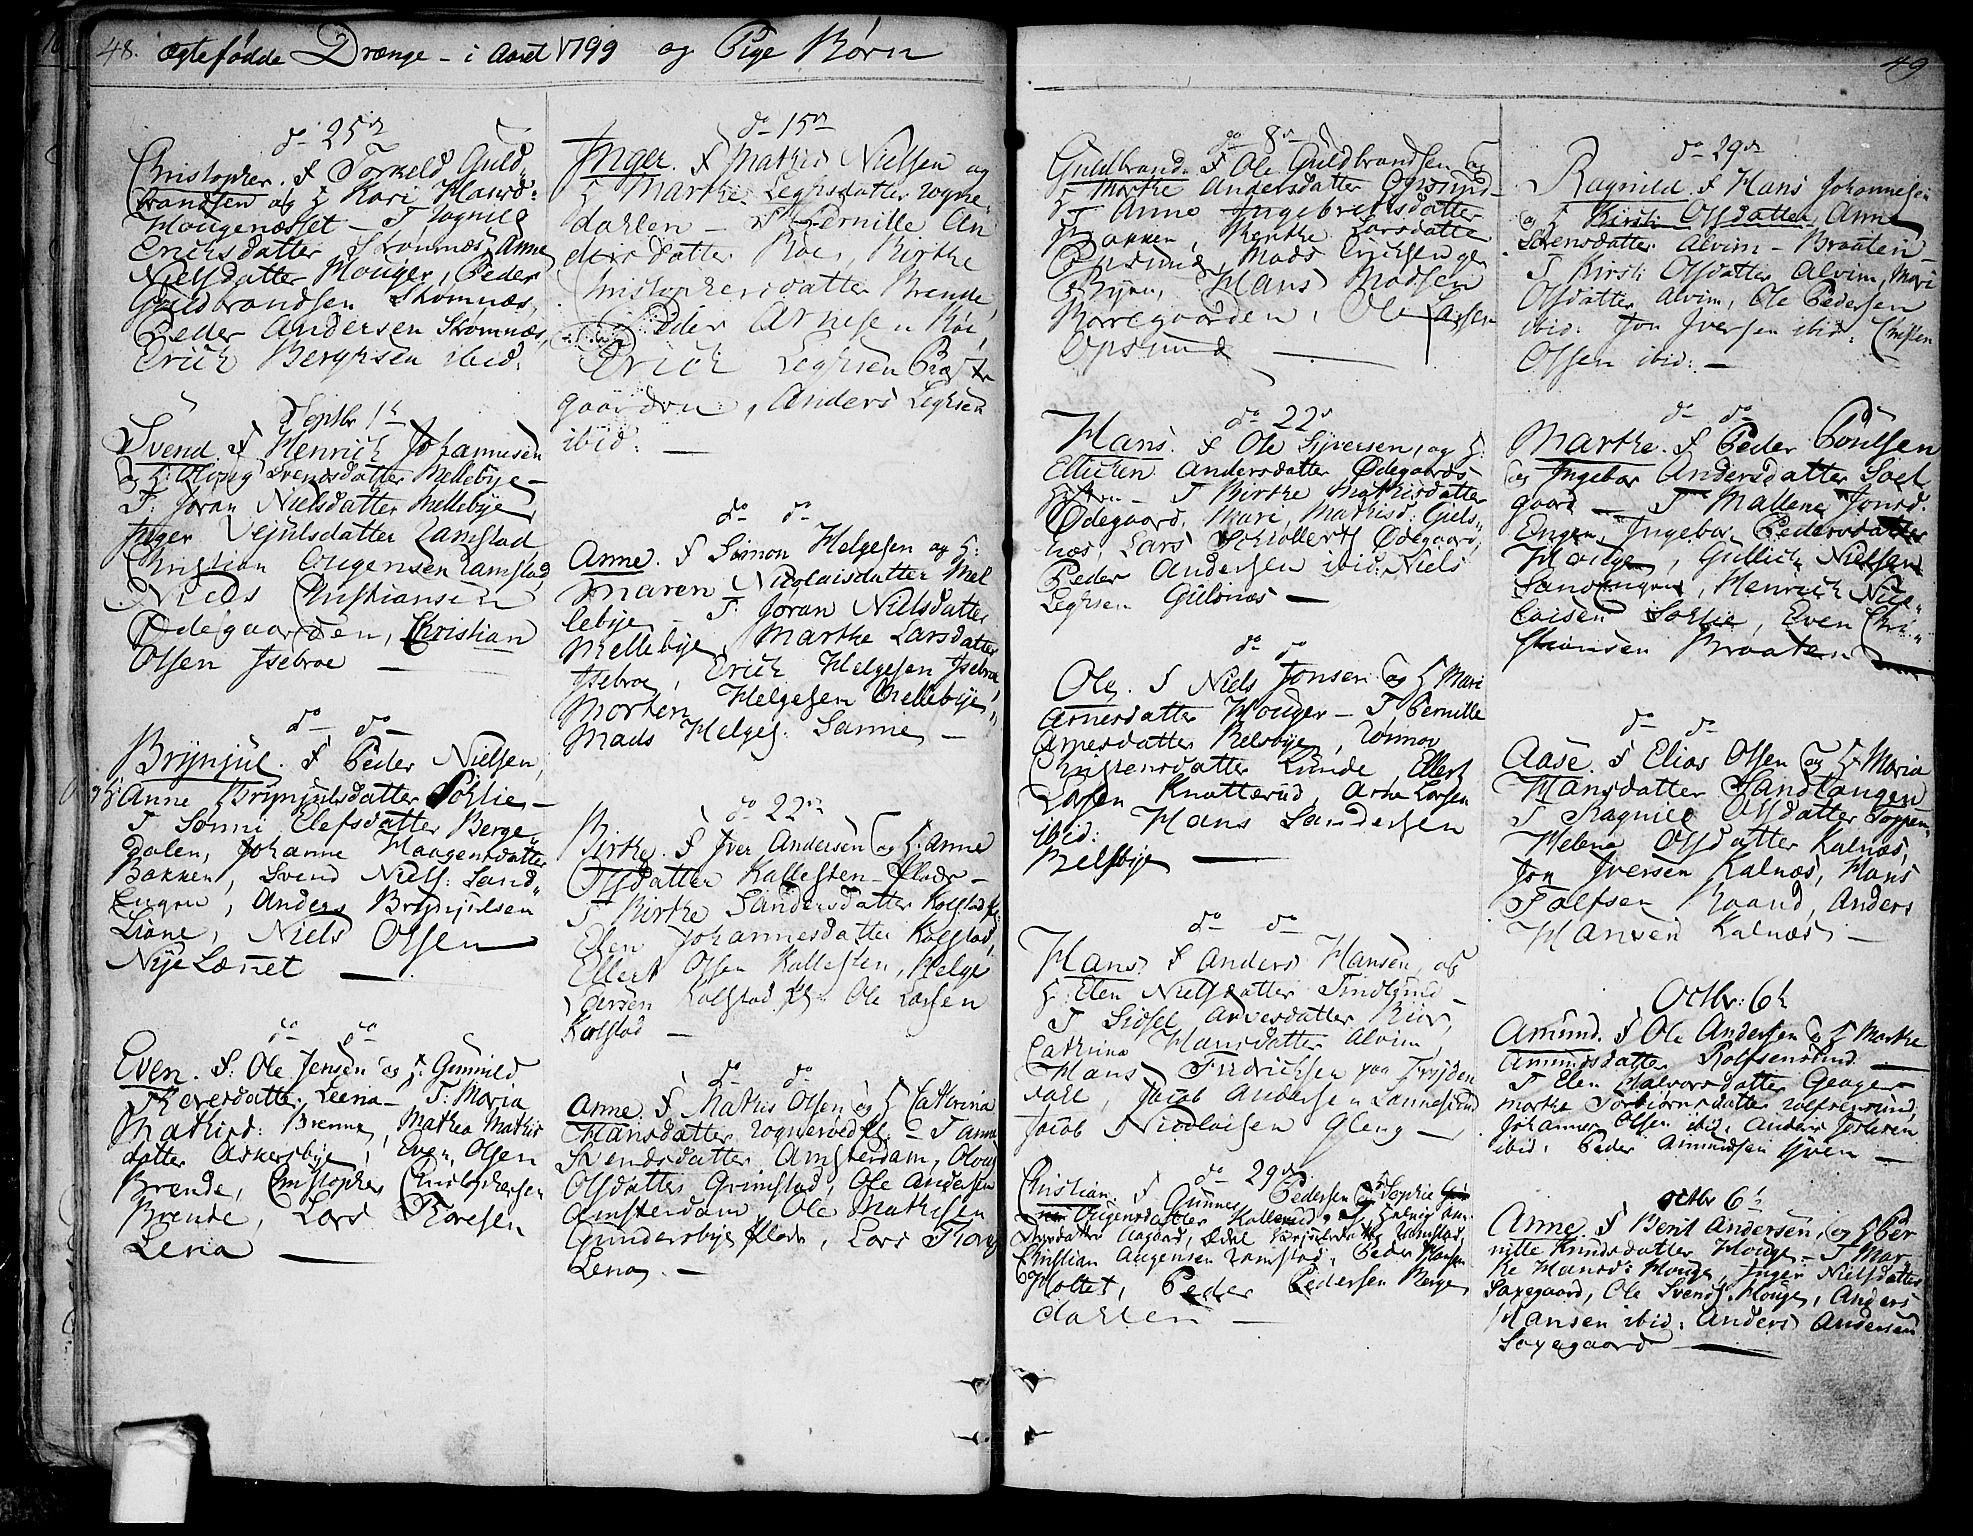 48. ægtefødde Drænge - i Aaret 1799 og Pige Børn
do 25de
Christopher. F Torkeld Guld-
brandsen og H Kari Haurd:
Hougenæsset - T Rognild
Erichsdatter Skomnæs, Anne
Nielsdatter Houger, Peder
Guldbrandsen Skomnæs,
Peder Andersen Skomnæs,
Erich Berghsen ibid:
Septbr 1te
Svend. F Henrich Johannesen
og H: Oloug Svensdatter Mellebye -
T. Joran Nielsdatter Mellebye,
Inger Vejulsdatter Lamstad
Christian Ougensen Lamstad,
Niels Christiansen
Ødegaarden, Christian
Olsen Isebroe -
do do
Brynjul. F Peder Nielsen,
og H Anne Brynjulsdatter Sohlie -
T Sønni Elefsdatter Berge-
dalen, Johanne Haagensdatter
Bakken, Svend Niels: Sand-
Engen, Anders Brynjulsen
Liane, Niels Olsen
Nye Lænet -
do do
Even. F: Ole Jensen og H: Gunnild
Thoversdatter Leena - T: Maria
Mathisd: Brenne, Mathea Mathis
datter Askersbye, Even Olsen
Brende, Christopher Christophersen
Brende, Lars Thoresen
Lena -
do 15de
Inger. F Mathis Nielsen og
H Marthe Leghsdatter Rogne-
dahlen - T Pernille An-
dersdatter Roe, Birthe
Christophersdatter Brende,
Peder Arnesen Roe,
Erich Leghsen Præste
gaarden, Anders Leghsen
ibid: -
do do
Anne. F Simon Helgesen og H:
Maren Nicolaisdatter Mel
lebye - T. Joran Nielsdatter
Mellebye, Marthe Larsdatter
Isebroe, Erich Helgesen Isebroe,
Morten Helgesen Mellebye,
Mads Helges: Sanne -
do 22de
Birthe. F Iver Andersen og H: Anne
Olsdatter Kallesten-flade -
T Birthe Sandersdatter Kolstad fl:
Elen Johannesdatter Kolstad,
Ellert Olsen Kallesten, Helge
Larsen Kolstad fl: Ole Larsen
Kolstad -
do do
Anne. F Mathis Olsen og H Cathrina
Hansdatter Rognerød fl: - T Anne
Svendsdatter Amsterdam, Oloug
Olsdatter Grimstad, Ole Andersen
Amsterdam, Ole Mathisen
Gundersbye flade, Lars Thores
Lena. -
49
do 8de
Guldbrand. F Ole Guldbrandsen og
H Marthe Andersdatter Opsund -
T Anne Ingebretsdatter
Bakken, Marthe Larsdatter
Opsund, Mads Erichsen
Byen, Hans Madsen
Norregaarden, Ole Larsen
Opsund -
do 22de
Hans. F Ole Syversen, og H:
Ellichen Andersdatter Ødegaards
T Birthe Mathisdatter
Ødegaard, Mari Mathisd: Giels-
næs, Lars Schollert Ødegaard,
Peder Andersen ibid: Niels
Leghsen Gielsnæs -
do do
Ole. F Niels Jonsen og H Mari
Arnesdatter Houger - T Pernille
Arnesdatter Belsbye, Rønnov
Christensdatter Lunde, Ellert
Larsen Knatterud, Arne Larsen
ibid: Hans Sandersen
Belsbye -
do do
Hans F Anders Hansen, og
H: Elen Nielsdatter Tindlund -
T Sidsel Arvesdatter Kiær,
Cathrina Hansdatter Alvim,
Hans Fredrichsen paa Fryden
dahl, Jacob Andersen Lannesund
Jacob Nicolaisen Gleng -
do 29de
Christian. F Gunner Pedersen og H Sophie
Ougensdatter Kallerud, T Helvig An-
dersdatter Aagaard, Edel Vejulsdatter Lamstad,
Christian Augensen Lamstad, Peder Hansen
Holtet, Peder Pedersen Berge
dahlen -
do 29de
Ragnild. F Hans Johannesen
og H Kirsti Olsdatter Anne
Sørensdatter Alvim - Braaten -
T Kirsti Olsdatter Alvim, Mari
Olsdatter Alvim, Ole Pedersen
ibid: Jon Iversen ibid: Christen
Olsen ibid: -
do do
Marthe. F Peder Poulsen
og Ingebor Andersdatter Soel
gaard - T Mallene Jonsd.
Engen, Ingebor Pedersdatter
Houge, Gullich Nielsen
Sandengen, Henrich Nico-
laisen Sohlie, Even Chri-
stiansen Braaten -
do do
Aase. F Elias Olsen og H. Maria
Hansdatter Sandtangen
T Ragnild Olsdatter Toppen,
Helena Olsdatter Kalnæs,
Jon Iversen Kalnæs, Hans
Tolfsen Raand, Anders
Hansen Kalnæs -
Octbr: 6te
Amund. F Ole Andersen og H Marthe
Amundsdatter Rolfsensund. -
T Elen Halvorsdatter Geager
Marthe Torbiørnsdatter Rolfsensund,
Johannes Olsen ibid: Anders Torstensen
ibid, Peder Amundsen Hven -
Octbr 6te
Anne F Berit Andersen, og H Per-
nille Knudsdatter Houge - T Mar-
the Hansd: Houge, Inger Nielsdatter
Saxegaard, Ole Svends: Houge, Anders
Hansen ibid: Anders Andersen
Saxegaard -